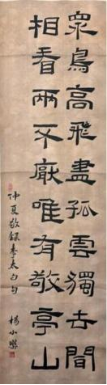 眾鳥高飛盡孤雲獨去間
相看兩不厭唯有敬亭山
仲夏敬録李太白句 楊小